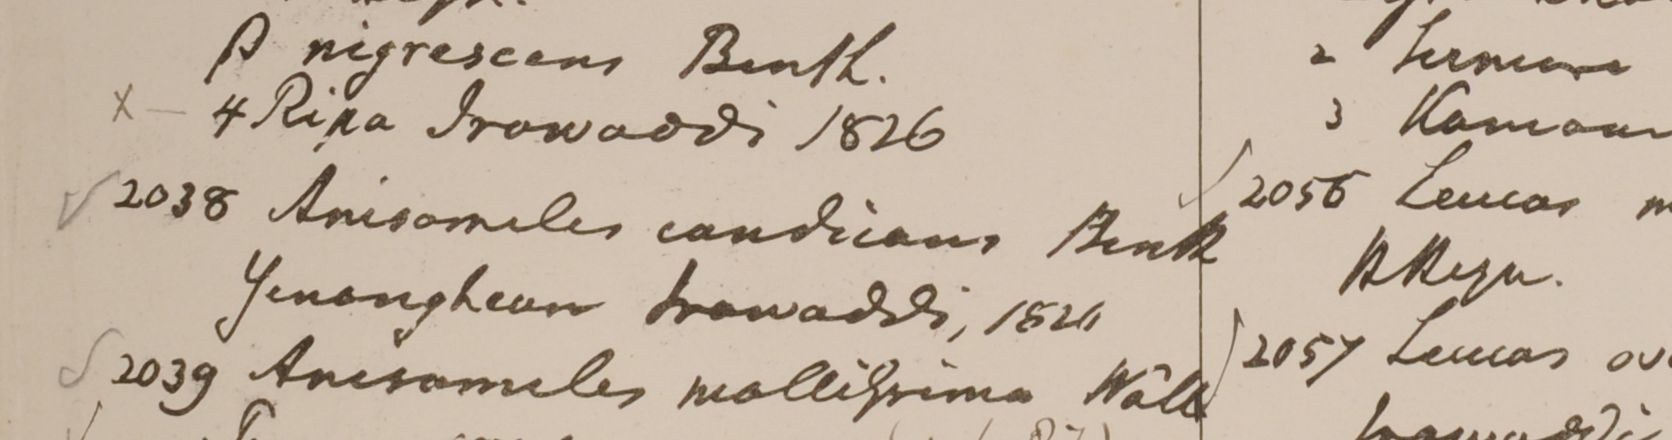 β nigrescens Benth.
X — 4 Ripa Irawaddi 1826
2038 Anisomeles candicans Benth
Yenangheum Irawaddi, 1826
2039 Anisomeles mollissima Wall
3 Kamaun
2056 Leucas m
2057 Leucas ova
Irawaddi